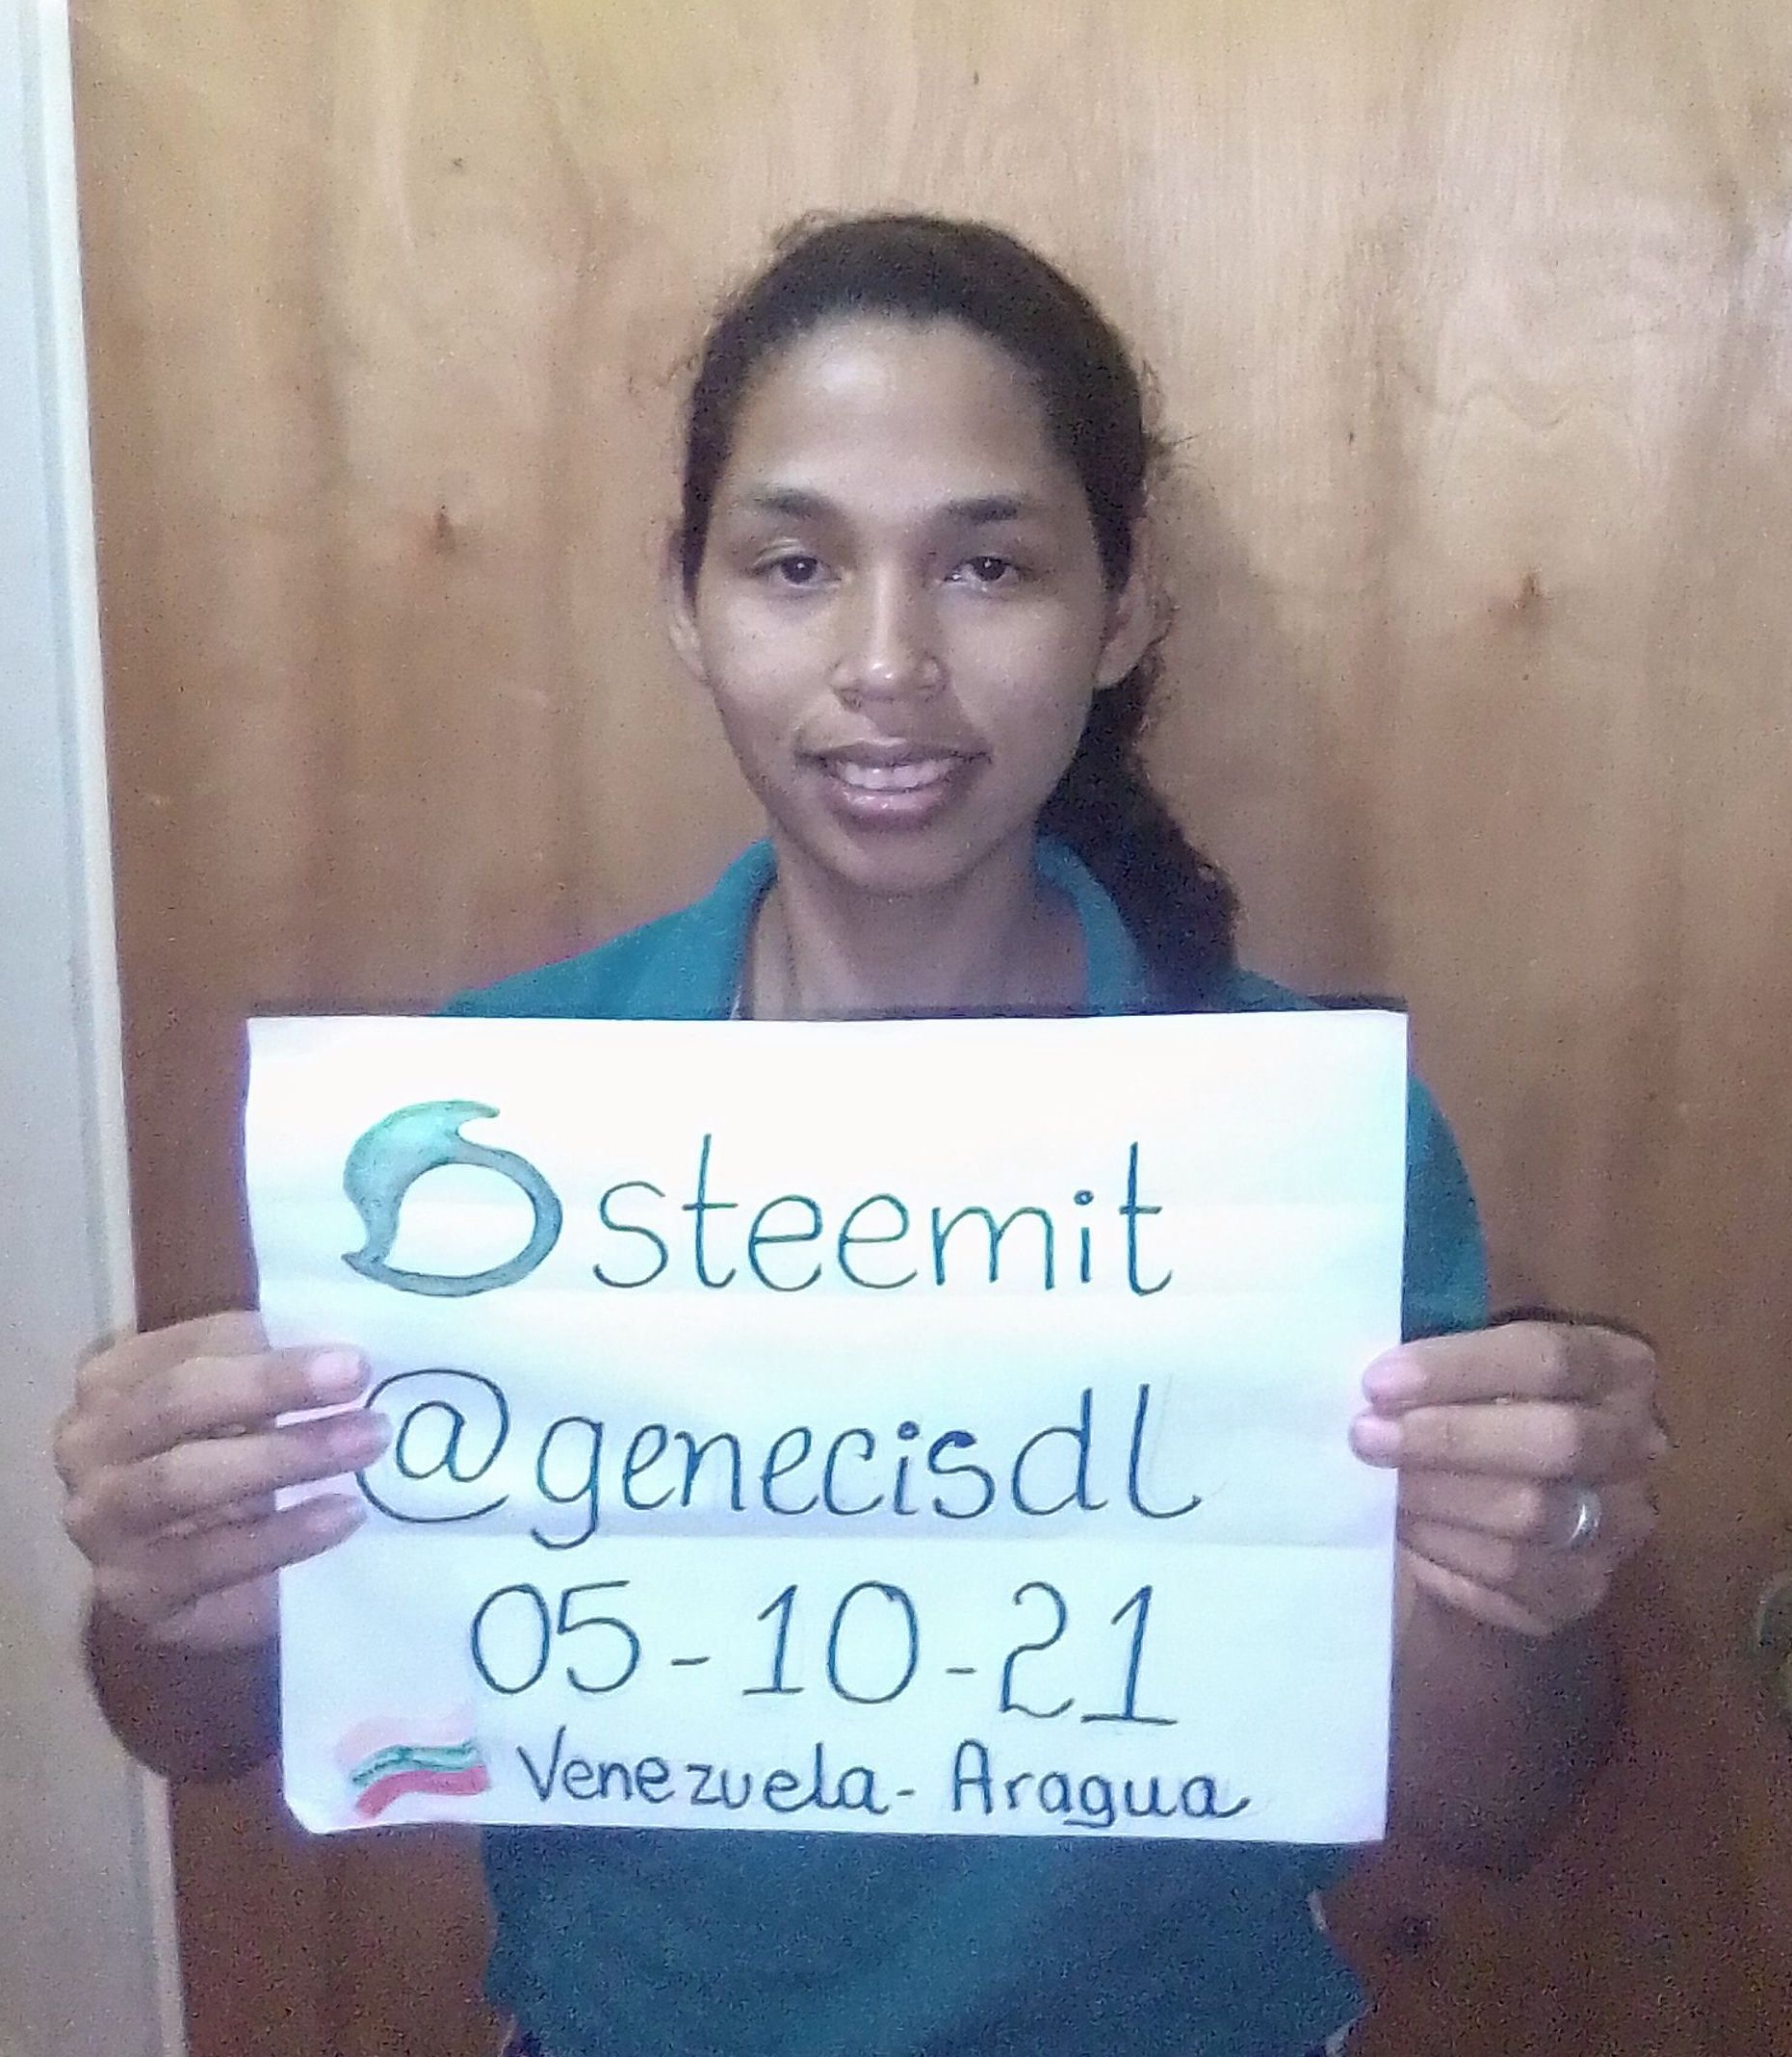 steemit
@genecisdl
05-10-21
Venezuela - Aragua